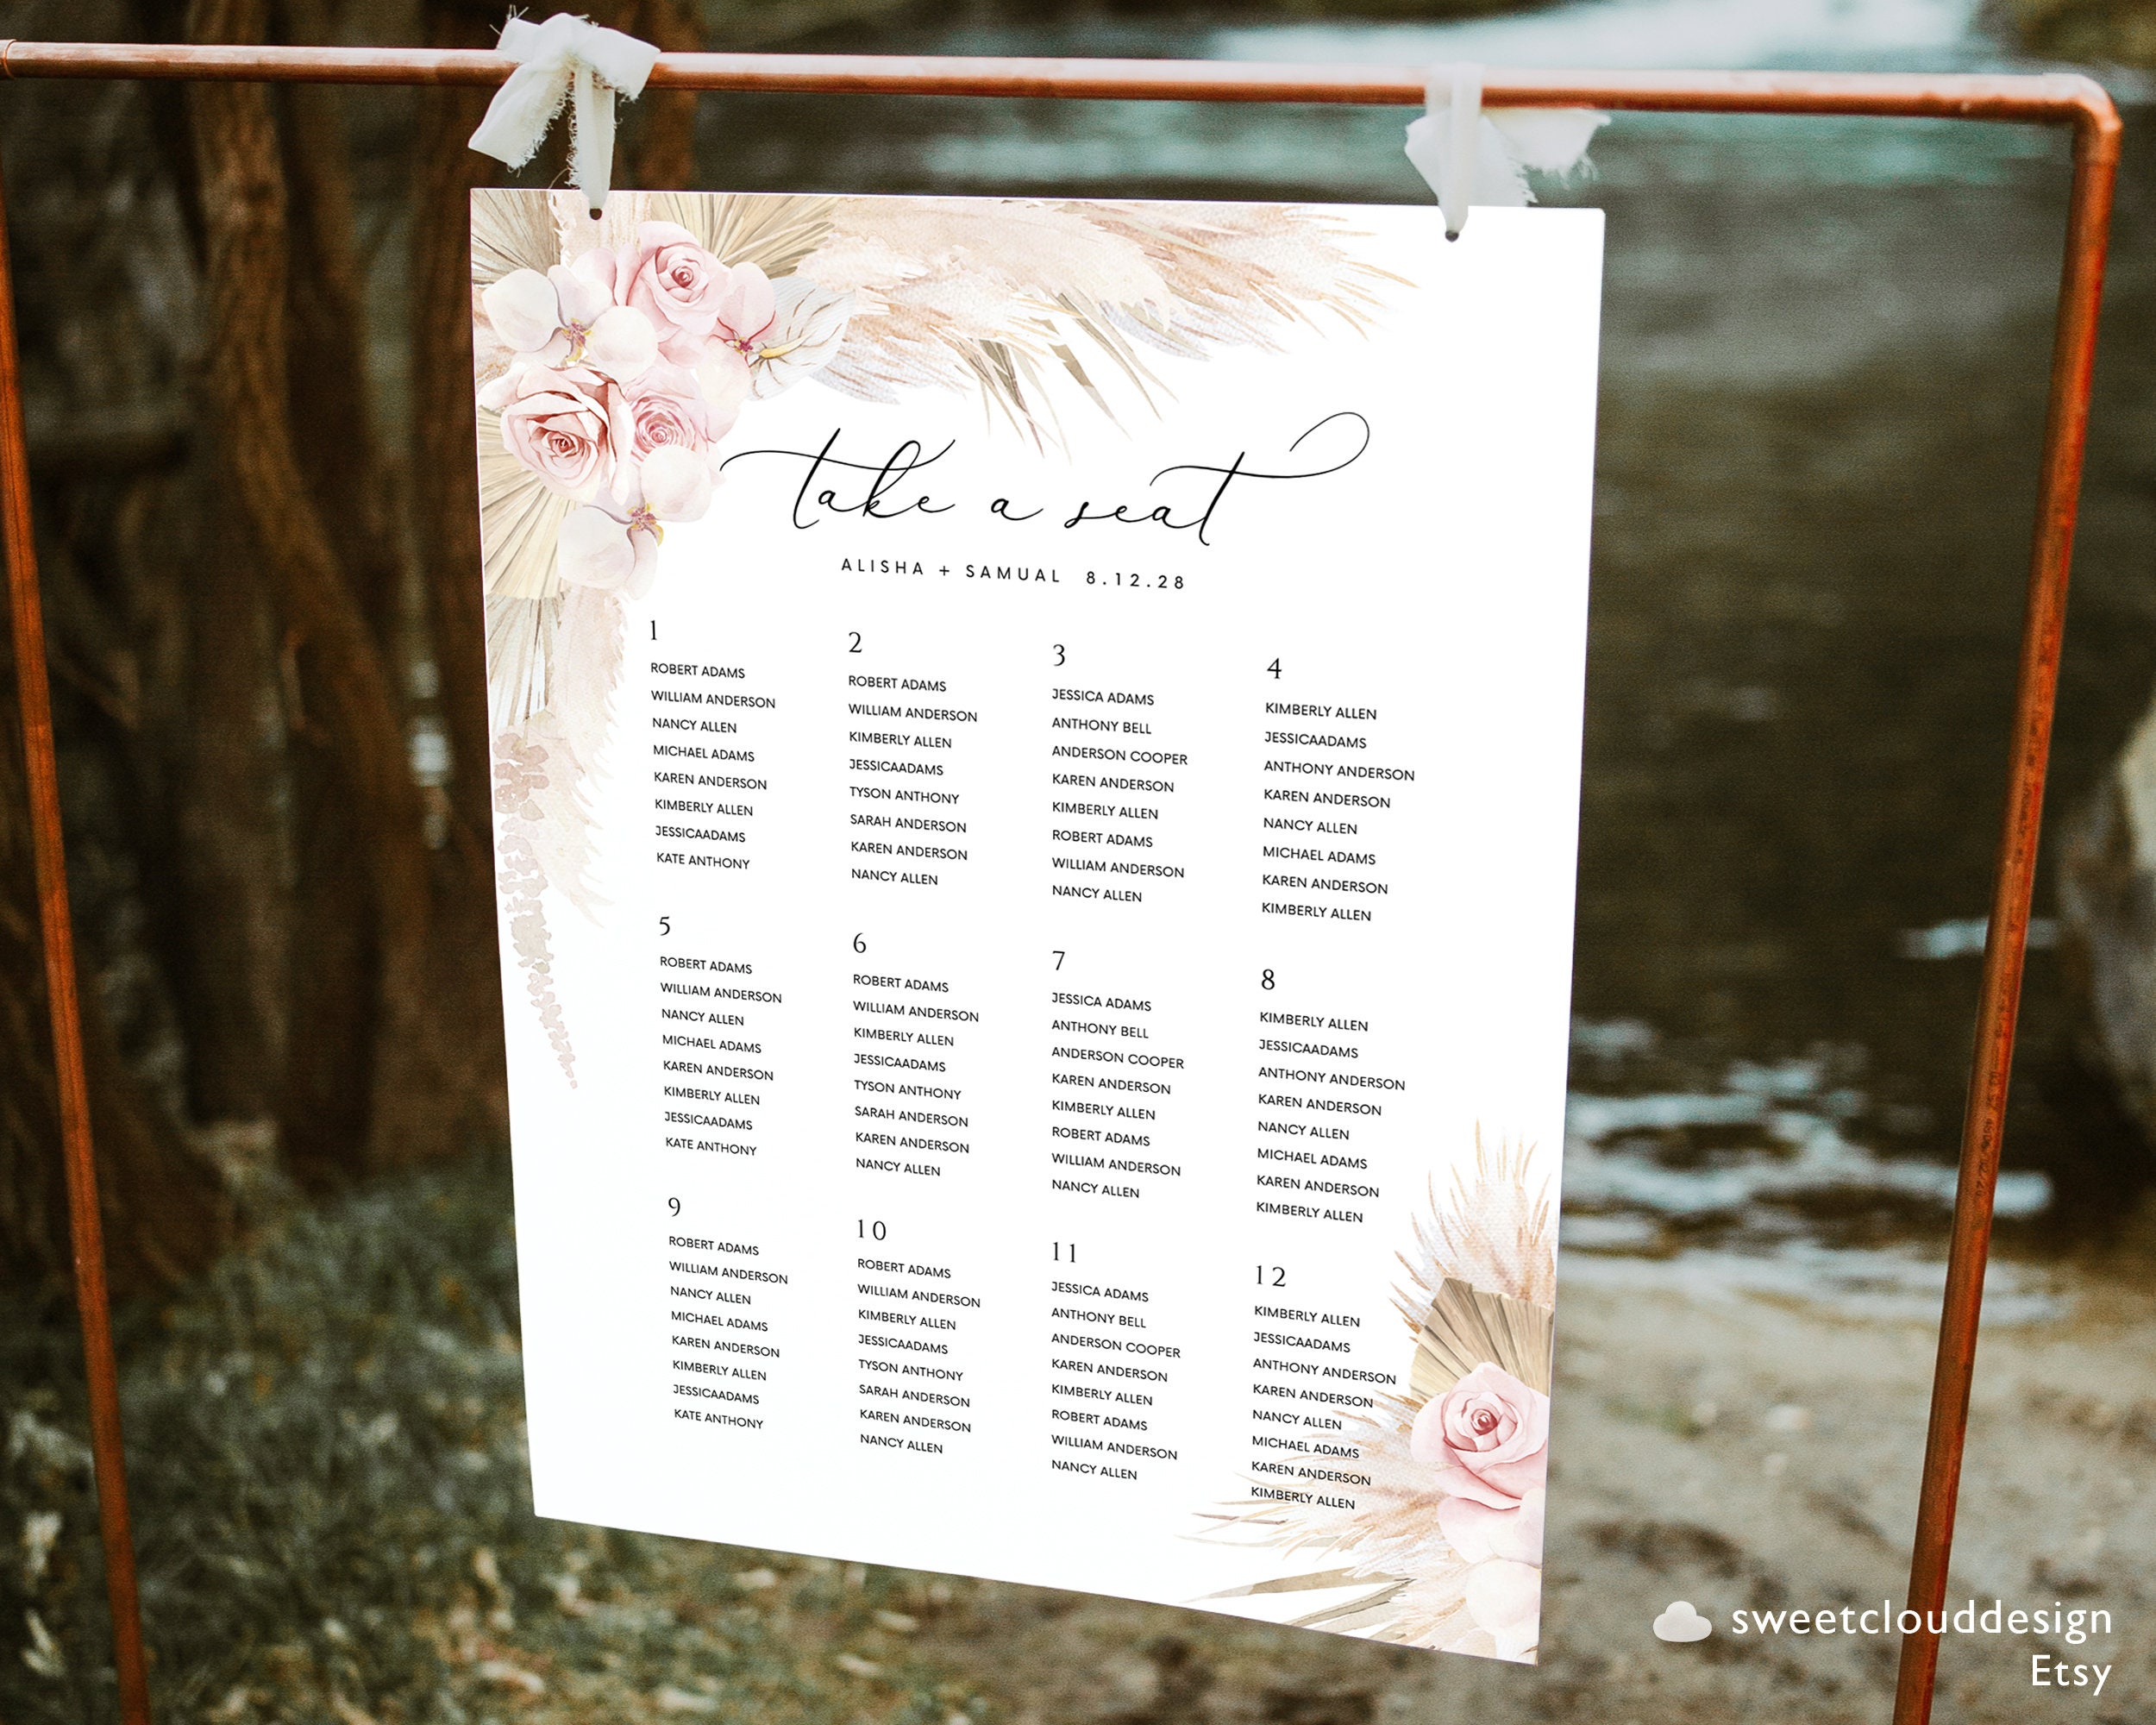 take a seat
ALISHA + SAMUAL 8.12.28
1
ROBERT ADAMS
WILLIAM ANDERSON
NANCY ALLEN
MICHAEL ADAMS
KAREN ANDERSON
KIMBERLY ALLEN
JESSICAADAMS
KATE ANTHONY
2
ROBERT ADAMS
WILLIAM ANDERSON
KIMBERLY ALLEN
JESSICAADAMS
TYSON ANTHONY
SARAH ANDERSON
KAREN ANDERSON
NANCY ALLEN
3
JESSICA ADAMS
ANTHONY BELL
ANDERSON COOPER
KAREN ANDERSON
KIMBERLY ALLEN
ROBERT ADAMS
WILLIAM ANDERSON
NANCY ALLEN
4
KIMBERLY ALLEN
JESSICAADAMS
ANTHONY ANDERSON
KAREN ANDERSON
NANCY ALLEN
MICHAEL ADAMS
KAREN ANDERSON
KIMBERLY ALLEN
5
ROBERT ADAMS
WILLIAM ANDERSON
NANCY ALLEN
MICHAEL ADAMS
KAREN ANDERSON
KIMBERLY ALLEN
JESSICAADAMS
KATE ANTHONY
6
ROBERT ADAMS
WILLIAM ANDERSON
KIMBERLY ALLEN
JESSICAADAMS
TYSON ANTHONY
SARAH ANDERSON
KAREN ANDERSON
NANCY ALLEN
7
JESSICA ADAMS
ANTHONY BELL
ANDERSON COOPER
KAREN ANDERSON
KIMBERLY ALLEN
ROBERT ADAMS
WILLIAM ANDERSON
NANCY ALLEN
8
KIMBERLY ALLEN
JESSICAADAMS
ANTHONY ANDERSON
KAREN ANDERSON
NANCY ALLEN
MICHAEL ADAMS
KAREN ANDERSON
KIMBERLY ALLEN
9
ROBERT ADAMS
WILLIAM ANDERSON
NANCY ALLEN
MICHAEL ADAMS
KAREN ANDERSON
KIMBERLY ALLEN
JESSICAADAMS
KATE ANTHONY
10
ROBERT ADAMS
WILLIAM ANDERSON
KIMBERLY ALLEN
JESSICAADAMS
TYSON ANTHONY
SARAH ANDERSON
KAREN ANDERSON
NANCY ALLEN
11
JESSICA ADAMS
ANTHONY BELL
ANDERSON COOPER
KAREN ANDERSON
KIMBERLY ALLEN
ROBERT ADAMS
WILLIAM ANDERSON
NANCY ALLEN
12
KIMBERLY ALLEN
JESSICAADAMS
ANTHONY ANDERSON
KAREN ANDERSON
NANCY ALLEN
MICHAEL ADAMS
KAREN ANDERSON
KIMBERLY ALLEN
sweetclouddesign
Etsy